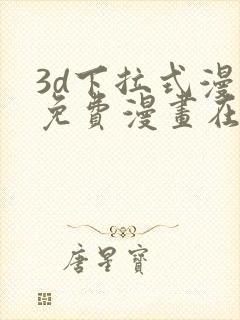 3d下拉式漫
免費漫畫在
唐星寶